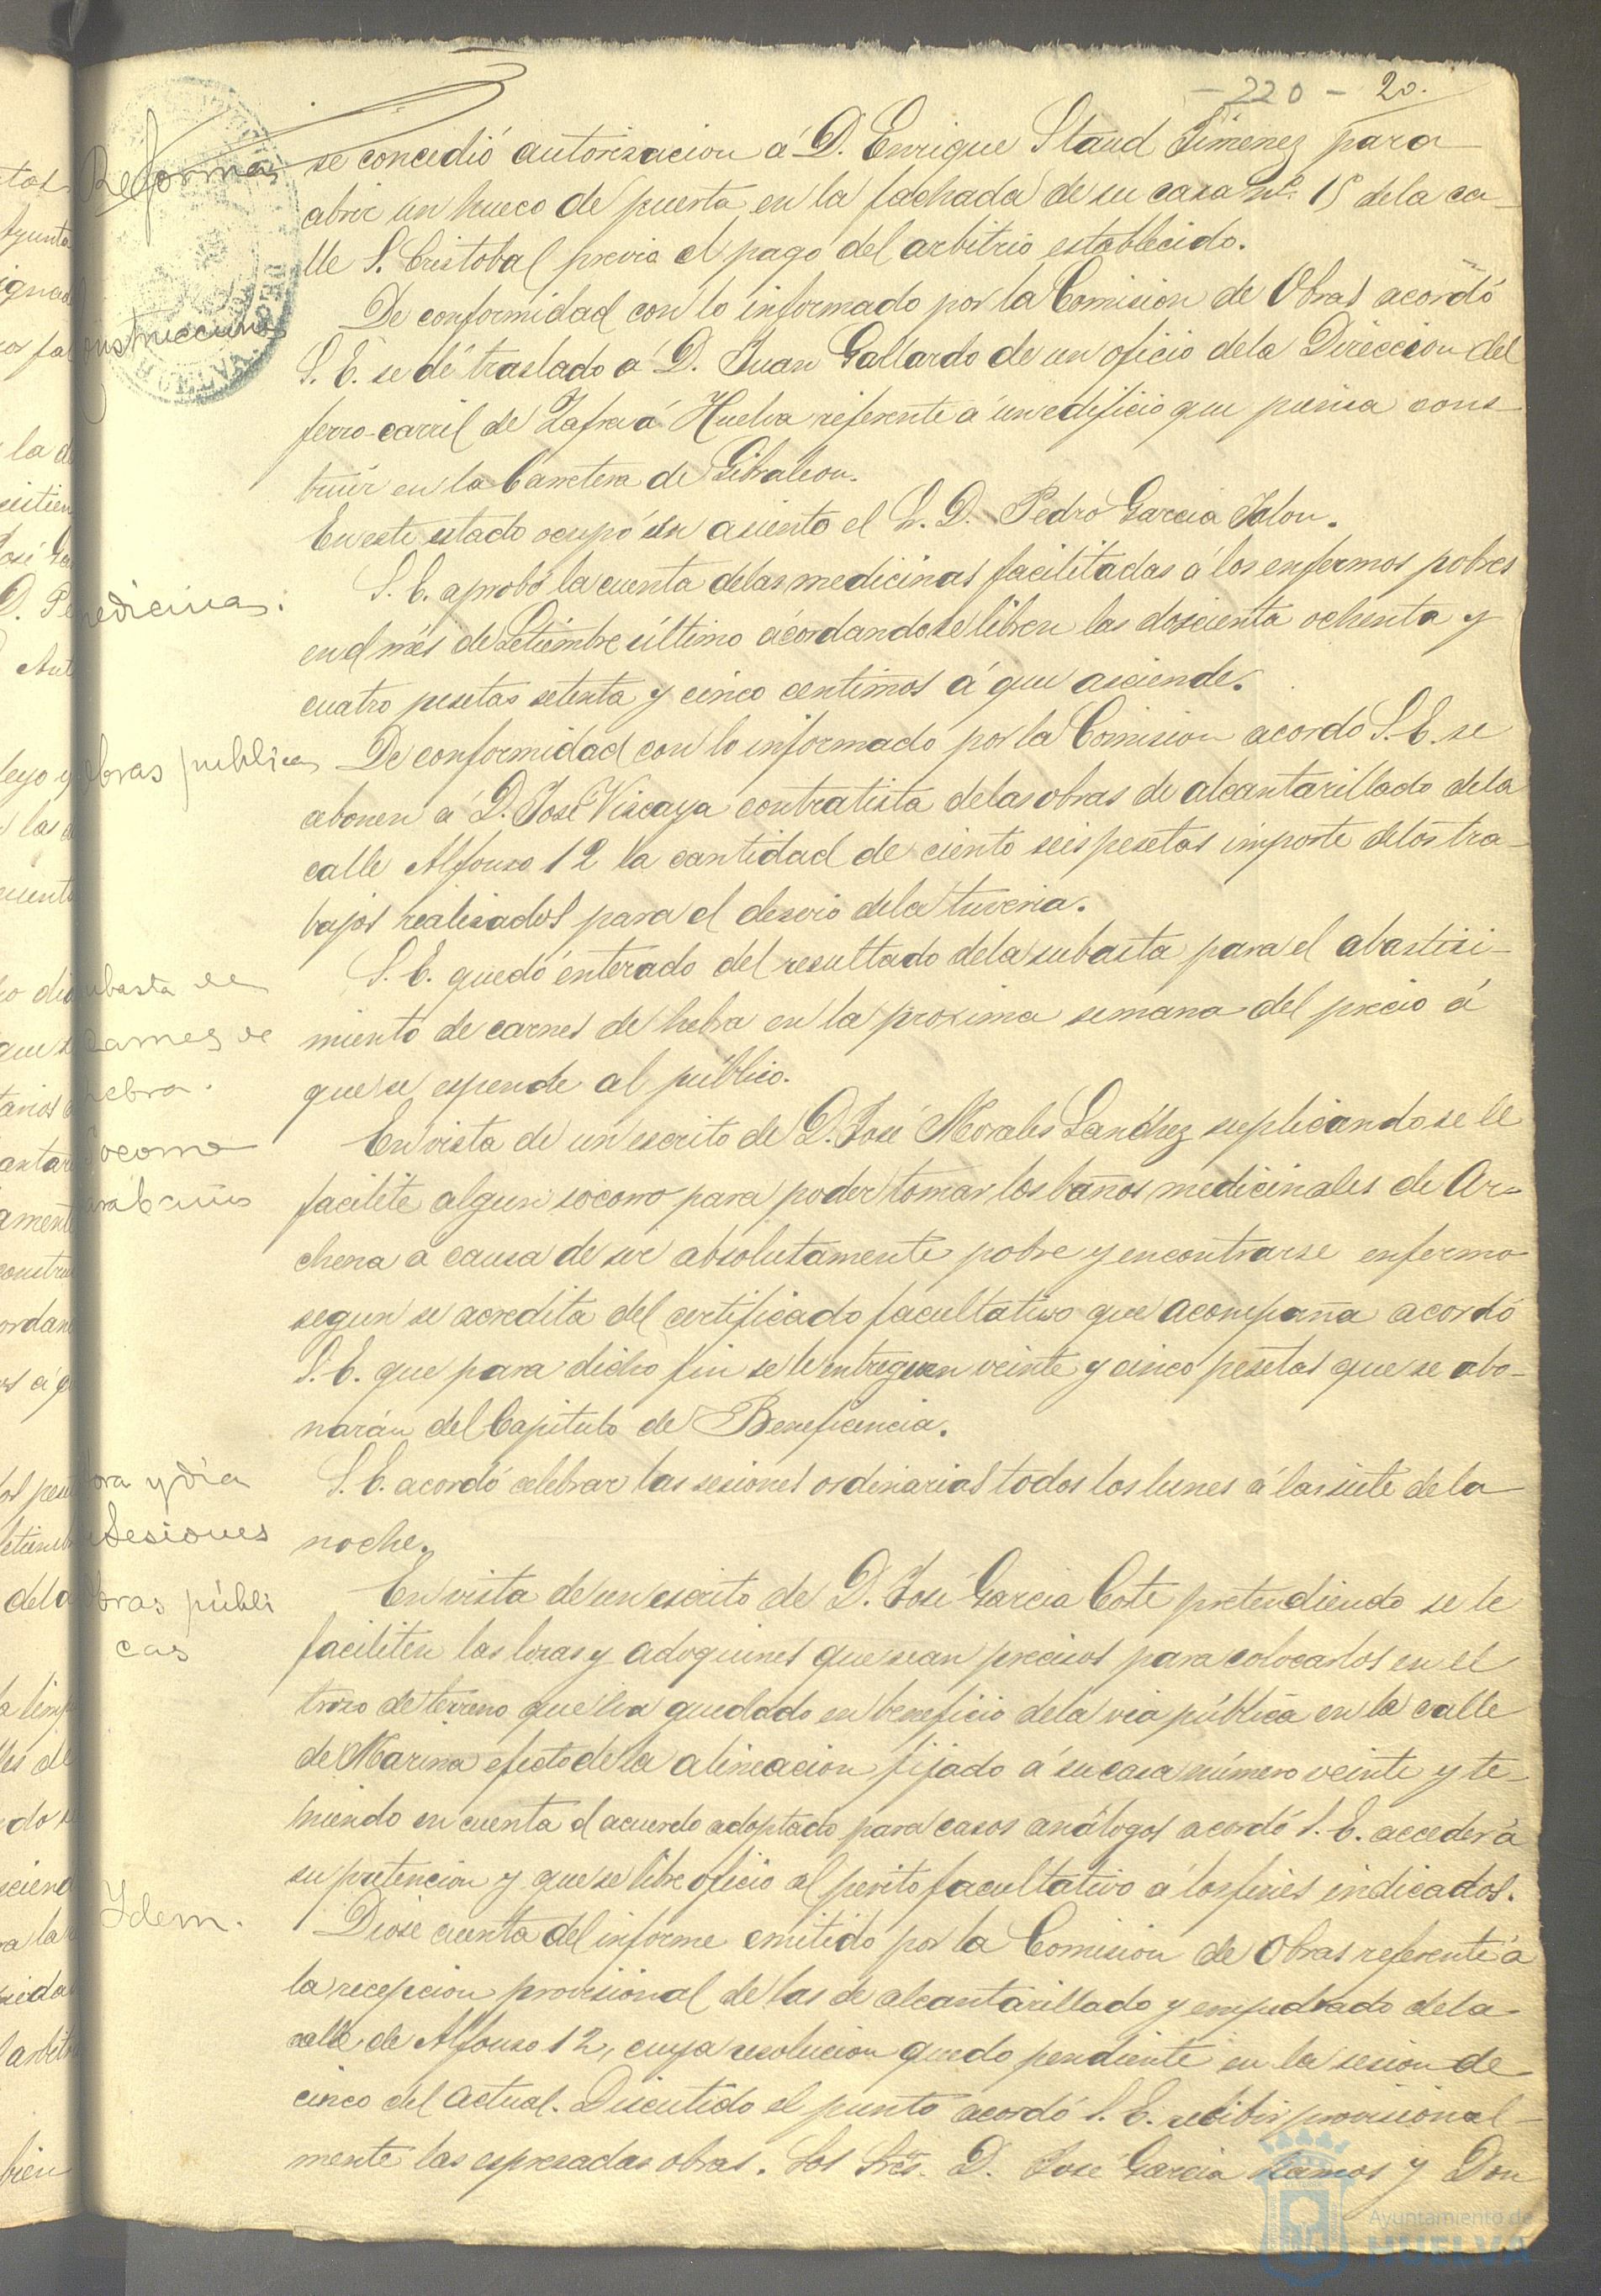 - 220 - 20.
Reformas
se concedió autorizacion á D. Enrique Staud Jimenez para
abrir un hueco de puerta en la fachada de su casa nº 15 de la ca-
lle S. Cristobal previo el pago del arbitrio establecido.
Construcciones
De conformidad con lo informado por la Comision de Obras acordó
S. E. se dé traslado á D. Juan Gallardo de un oficio de la Direccion del
ferro-carril de Zafra á Huelva referente á un edificio que piensa cons-
truir en la Carretera de Gibraleon.
En este estado ocupó su asiento el S. D. Pedro Garcia Jalon.
medicinas.
S. E. aprobó la cuenta de las medicinas facilitadas á los enfermos pobres
en el mes de Setiembre último acordando se libren las doscienta ochenta y
cuatro pesetas setenta y cinco centimos á que asciende.
Obras publicas
De conformidad con lo informado por la Comision acordó S. E. se
abonen á D. José Viscaya contratista de las obras de alcantarillado de la
calle Alfonso 12 la cantidad de ciento seis pesetas importe de los tra-
bajos realisados para el desvio de la tuveria.
Subasta de
carnes de
hebra.
S. E. quedó enterado del resultado de la subasta para el abastisi-
miento de carnes de hebra en la proxima semana del precio á
que se espende al público.
Socorro
para baños
En vista de un escrito de D. José Morales Sanchez suplicando se le
facilite algun socorro para poder tomar los baños medicinales de Ar-
chena a causa de ser absolutamente pobre y encontrarse enfermo
segun se acredita del certificado facultativo que acompaña acordó
S. E. que para dicho fin se le entreguen veinte y cinco pesetas que se abo-
narán del Capitulo de Beneficencia.
hora y dia
de Sesiones
S. E. acordó celebrar las sesiones ordinarias todos los lunes á las siete de la
noche.
Obras públi
cas
En vista de un escrito de D. José Garcia Coste pretendiendo se le
faciliten las losas y adoquines que sean precisos para colocarlos en el
trozo de terreno que ha quedado en beneficio de la via pública en la calle
de Marina efecto de la alineacion fijado á su casa número veinte y te-
niendo en cuenta el acuerdo adoptado para casos análogos acordó S. E. acceder á
su pretencion y que se libre oficio al perito facultativo á los fines indicados.
Ydem.
Diose cuenta del informe emitido por la Comision de Obras referente á
la recepcion provisional de las de alcantarillado y empedrado de la
calle de Alfonso 12, cuya resolucion quedo pendiente en la sesion de
cinco del actual. Discutido el punto acordó S. E. recibir provisional-
mente las espresadas obras. Los Sres. D. José Garcia Ramos y Don
Ayuntamiento de
HUELVA